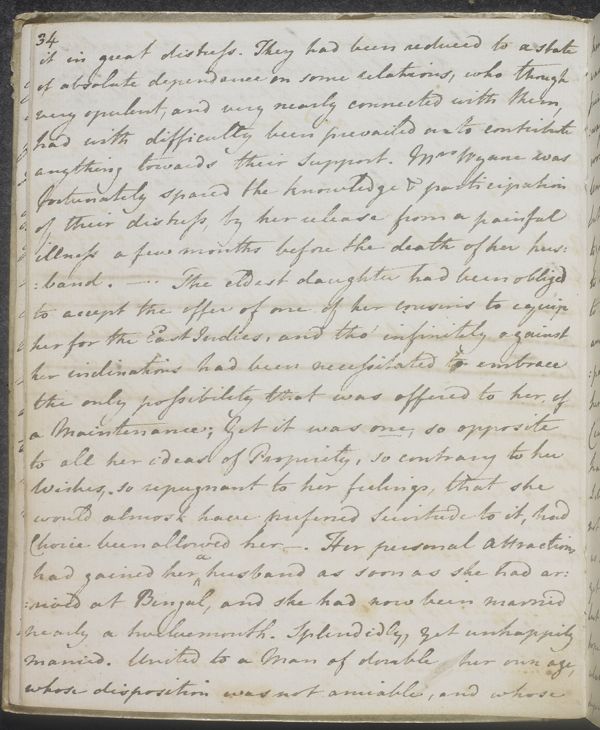 34
it in great distress. They had been reduced to a state
of absolute dependance on some relations, who though
very opulent, and very nearly connected with them,
had with difficulty been prevailed on to contribute
anything towards their Support. Mrs Wynne was
fortunately spared the knowledge & participation
of their distress, by her release from a painful
illness a few months before the death of her hus:
:band. — The eldest daughter had been obliged
to accept the offer of one of her cousins to equip
her for the East Indies, and tho' infinitely against
her inclinations had been necessitated to embrace
the only possibility that was offered to her, of
a Maintenance; Yet it was one, so opposite
to all her ideas of Propriety, so contrary to her
Wishes, so repugnant to her feelings, that she
would almost have preferred Servitude to it, had
Choice been allowed her —. Her personal Attractions
had gained her a husband as soon as she had ar:
:rived at Bengal, and she had now been married
nearly a twelvemonth. Splendidly, yet unhappily
married. United to a Man of double her own age,
whose disposition was not amiable, and whose